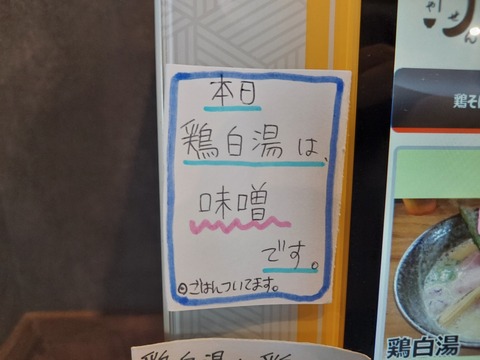 本日
鶏白湯は、
味噌
です。
⊙ごはんついてます。
鶏白湯